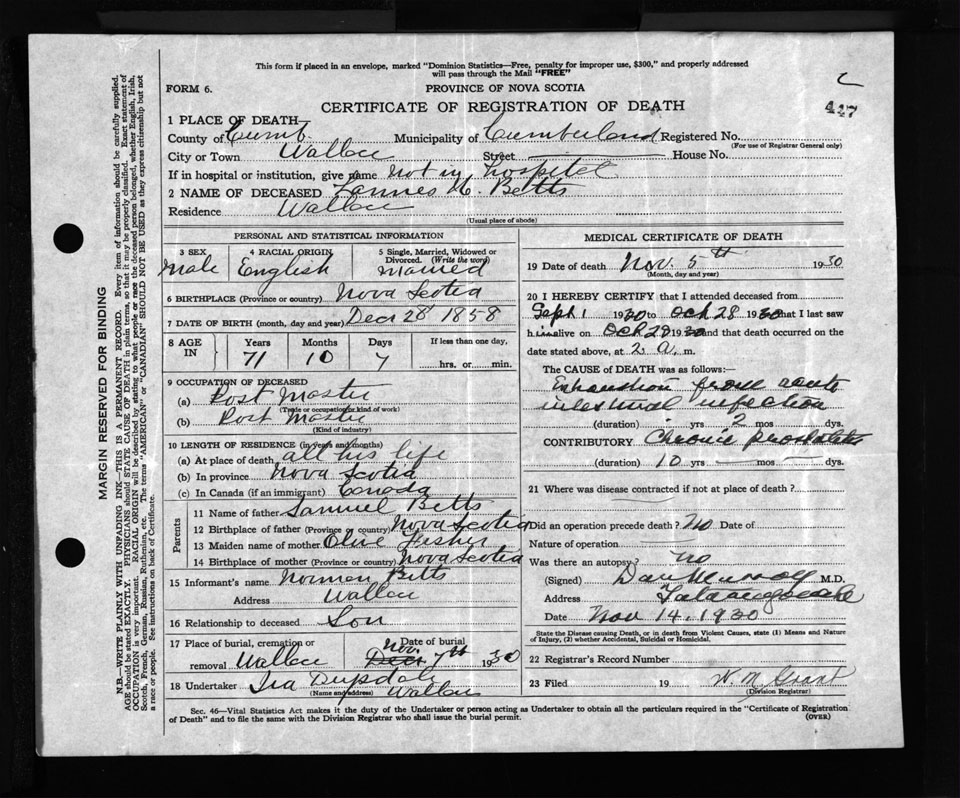 This form if placed in an envelope, marked "Dominion Statistics—Free, penalty for improper use, $300," and properly addressed
will pass through the Mail "FREE"
FORM 6. PROVINCE OF NOVA SCOTIA
CERTIFICATE OF REGISTRATION OF DEATH 447
1 PLACE OF DEATH
County of Cumb. Municipality of Cumberland Registered No.
(For use of Registrar General only)
City or Town Wallace Street — House No.
If in hospital or institution, give name not in hospital
2 NAME OF DECEASED Betts
Residence Wallace
(Usual place of abode)
PERSONAL AND STATISTICAL INFORMATION
3 SEX 4 RACIAL ORIGIN 5 Single, Married, Widowed or Divorced. (Write the word)
Male English Married
6 BIRTHPLACE (Province or country) Nova Scotia
7 DATE OF BIRTH (month, day and year) Decr 28 1858
8 AGE IN Years Months Days If less than one day,
71 10 7 hrs. or min.
9 OCCUPATION OF DECEASED
(a) Post Master
(Trade or occupation or kind of work)
(b) Post Master
(Kind of industry)
10 LENGTH OF RESIDENCE (in years and months)
(a) At place of death all his life
(b) In province Nova Scotia
(c) In Canada (if an immigrant) Canada
Parents
11 Name of father Samuel Betts
12 Birthplace of father (Province or country) Nova Scotia
13 Maiden name of mother Olive Fisher
14 Birthplace of mother (Province or country) Nova Scotia
15 Informant's name Norman Betts
Address Wallace
16 Relationship to deceased Son
17 Place of burial, cremation or removal Wallace Date of burial Nov. 7th 1930
18 Undertaker Ira
(Name and address) Wallace
MEDICAL CERTIFICATE OF DEATH
19 Date of death Nov. 5th 1930
(Month, day and year)
20 I HEREBY CERTIFY that I attended deceased from
Sept 1 1930 to Oct 28 1930 that I last saw
him alive on Oct 28 1930 and that death occurred on the
date stated above, at 2 a. m.
The CAUSE of DEATH was as follows:—
Exhaustion from acute
intestinal infection
(duration) yrs 2 mos dys.
CONTRIBUTORY Chronic prostatitis
(duration) 10 yrs — mos — dys.
21 Where was disease contracted if not at place of death?
Did an operation precede death? No Date of
Nature of operation
Was there an autopsy? no
(Signed) Dan Murray M.D.
Address Tatamagouche
Date Nov 14. 1930
State the Disease causing Death, or in death from Violent Causes, state (1) Means and Nature
of Injury, (2) whether Accidental, Suicidal or Homicidal.
22 Registrar's Record Number
23 Filed 19 W. M. Grant
(Division Registrar)
Sec. 46—Vital Statistics Act makes it the duty of the Undertaker or person acting as Undertaker to obtain all the particulars required in the "Certificate of Registration
of Death" and to file the same with the Division Registrar who shall issue the burial permit. (OVER)
MARGIN RESERVED FOR BINDING
N.B.—WRITE PLAINLY WITH UNFADING INK—THIS IS A PERMANENT RECORD. Every item of information should be carefully supplied.
AGE should be stated EXACTLY. PHYSICIANS should STATE CAUSE OF DEATH in plain terms, so that it may be properly classified. Exact statement of
OCCUPATION is very important. RACIAL ORIGIN will be described by stating to what people or race the deceased person belonged, whether English, Irish,
Scotch, French, German, Russian, Ruthenian, etc. The terms "AMERICAN" or "CANADIAN" SHOULD NOT BE USED as they express citizenship but not
a race or people. See instructions on back of Certificate.